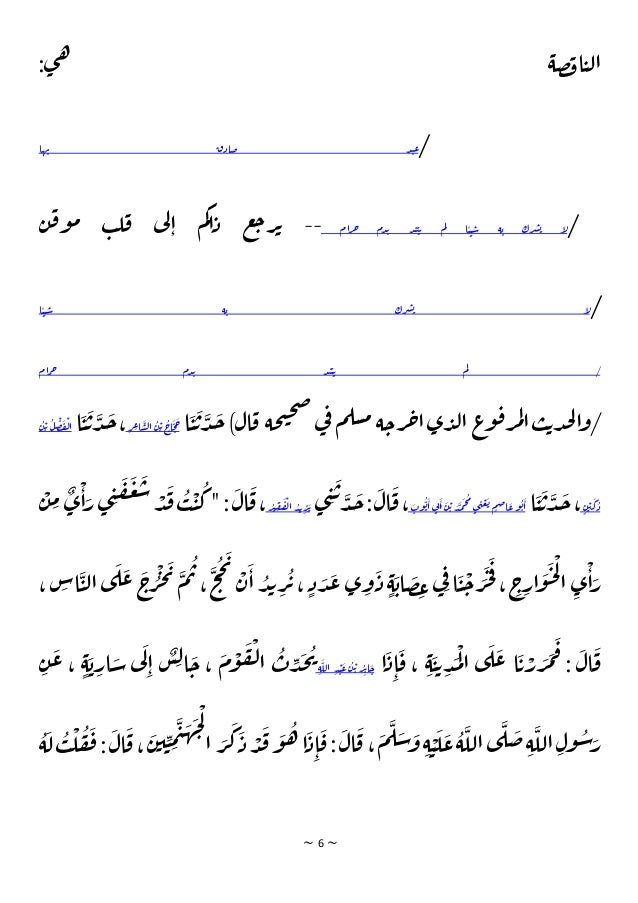 الناقصة هي:
/عبد صادق بها
/لا يشرك به شيئا لم يتند بدم حرام -- يرجع ذلكم إلى قلب موقن
/لا يشرك به شيئا
/ لم يتند بدم حرام
/والحديث المرفوع الذي اخرجه مسلم في صحيحه قال) حَدَّثَنَا حَجَّاجُ بْنُ الشَّاعِرِ ، حَدَّثَنَا الْفَضْلُ بْنُ
دُكَيْنٍ ، حَدَّثَنَا أَبُو عَاصِمٍ يَعْنِي مُحَمَّدَ بْنَ أَبِي أَيُّوبَ ، قَالَ : حَدَّثَنِي يَزِيدُ الْفَقِيرُ ، قَالَ : " كُنْتُ قَدْ شَغَفَنِي رَأْيٌ مِنْ
رَأْيِ الْخَوَارِجِ ، فَخَرَجْنَا فِي عِصَابَةٍ ذَوِي عَدَدٍ ، نُرِيدُ أَنْ نَحُجَّ ، ثُمَّ نَخْرُجَ عَلَى النَّاسِ ،
قَالَ : فَمَرَرْنَا عَلَى الْمَدِينَةِ ، فَإِذَا جَابِرُ بْنُ عَبْدِ اللَّهِ يُحَدِّثُ الْقَوْمَ ، جَالِسٌ إِلَى سَارِيَةٍ ، عَنِ
رَسُولِ اللَّهِ صَلَّى اللَّهُ عَلَيْهِ وَسَلَّمَ ، قَالَ : فَإِذَا هُوَ قَدْ ذَكَرَ الْجَهَنَّمِيِّينَ ، قَالَ : فَقُلْتُ لَهُ
~ 6 ~